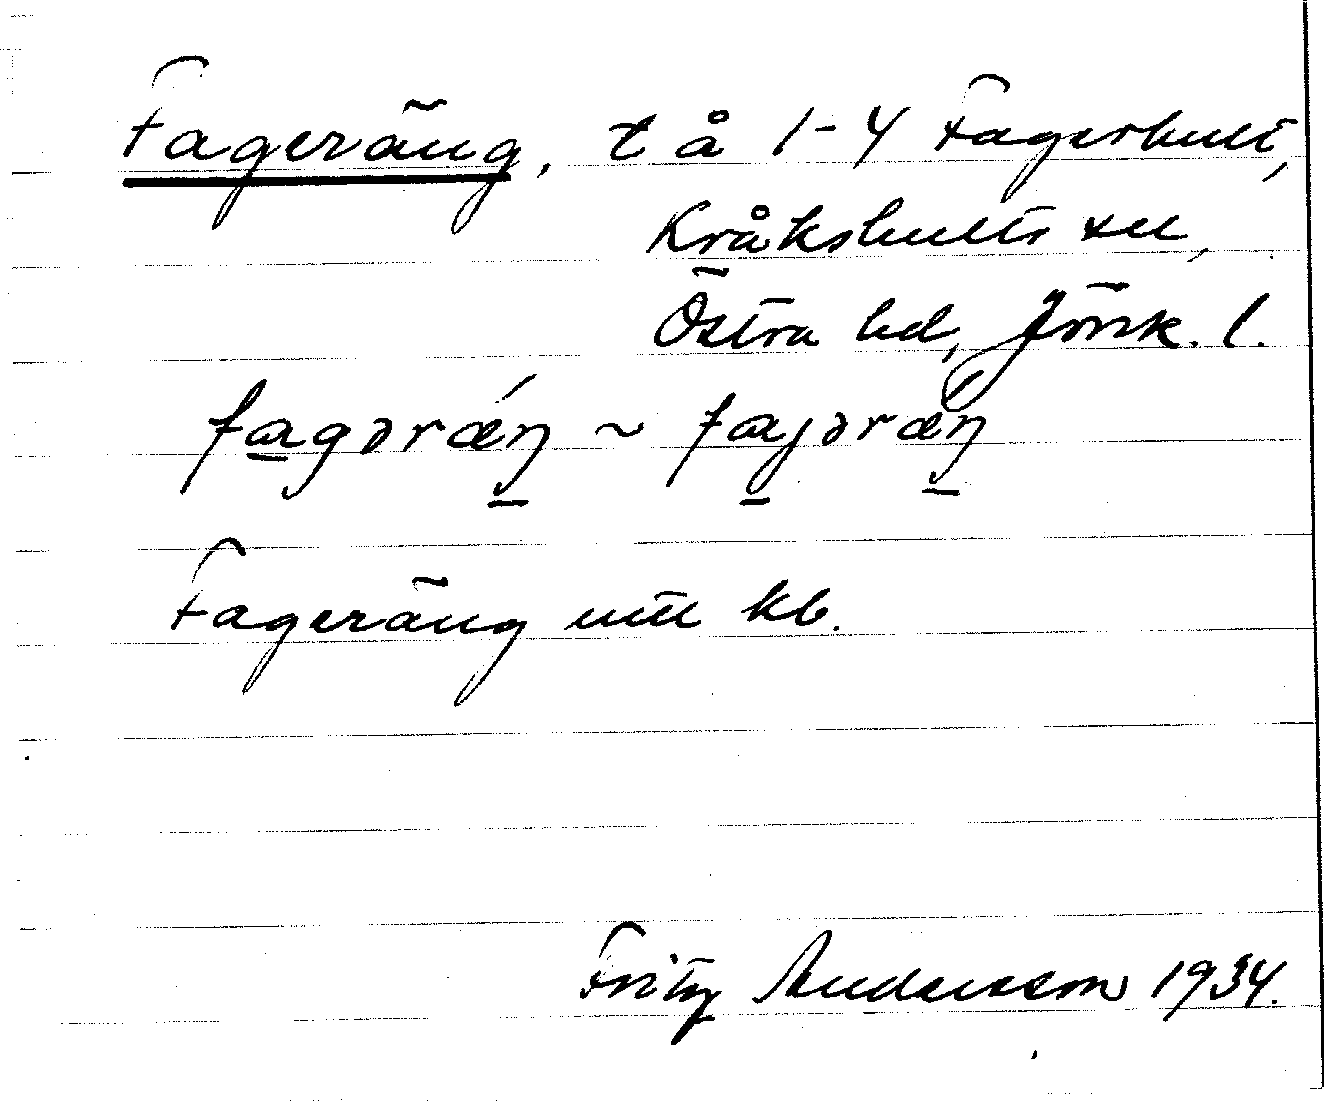 Fageräng, t å 1-4 Fagerhult,
Kråkshults sn,
Östra hd, Jönk. l.
fagəræ´ŋ ~ fajəræ´ŋ
Fageräng utt kb.
Fritz Andersson 1934.